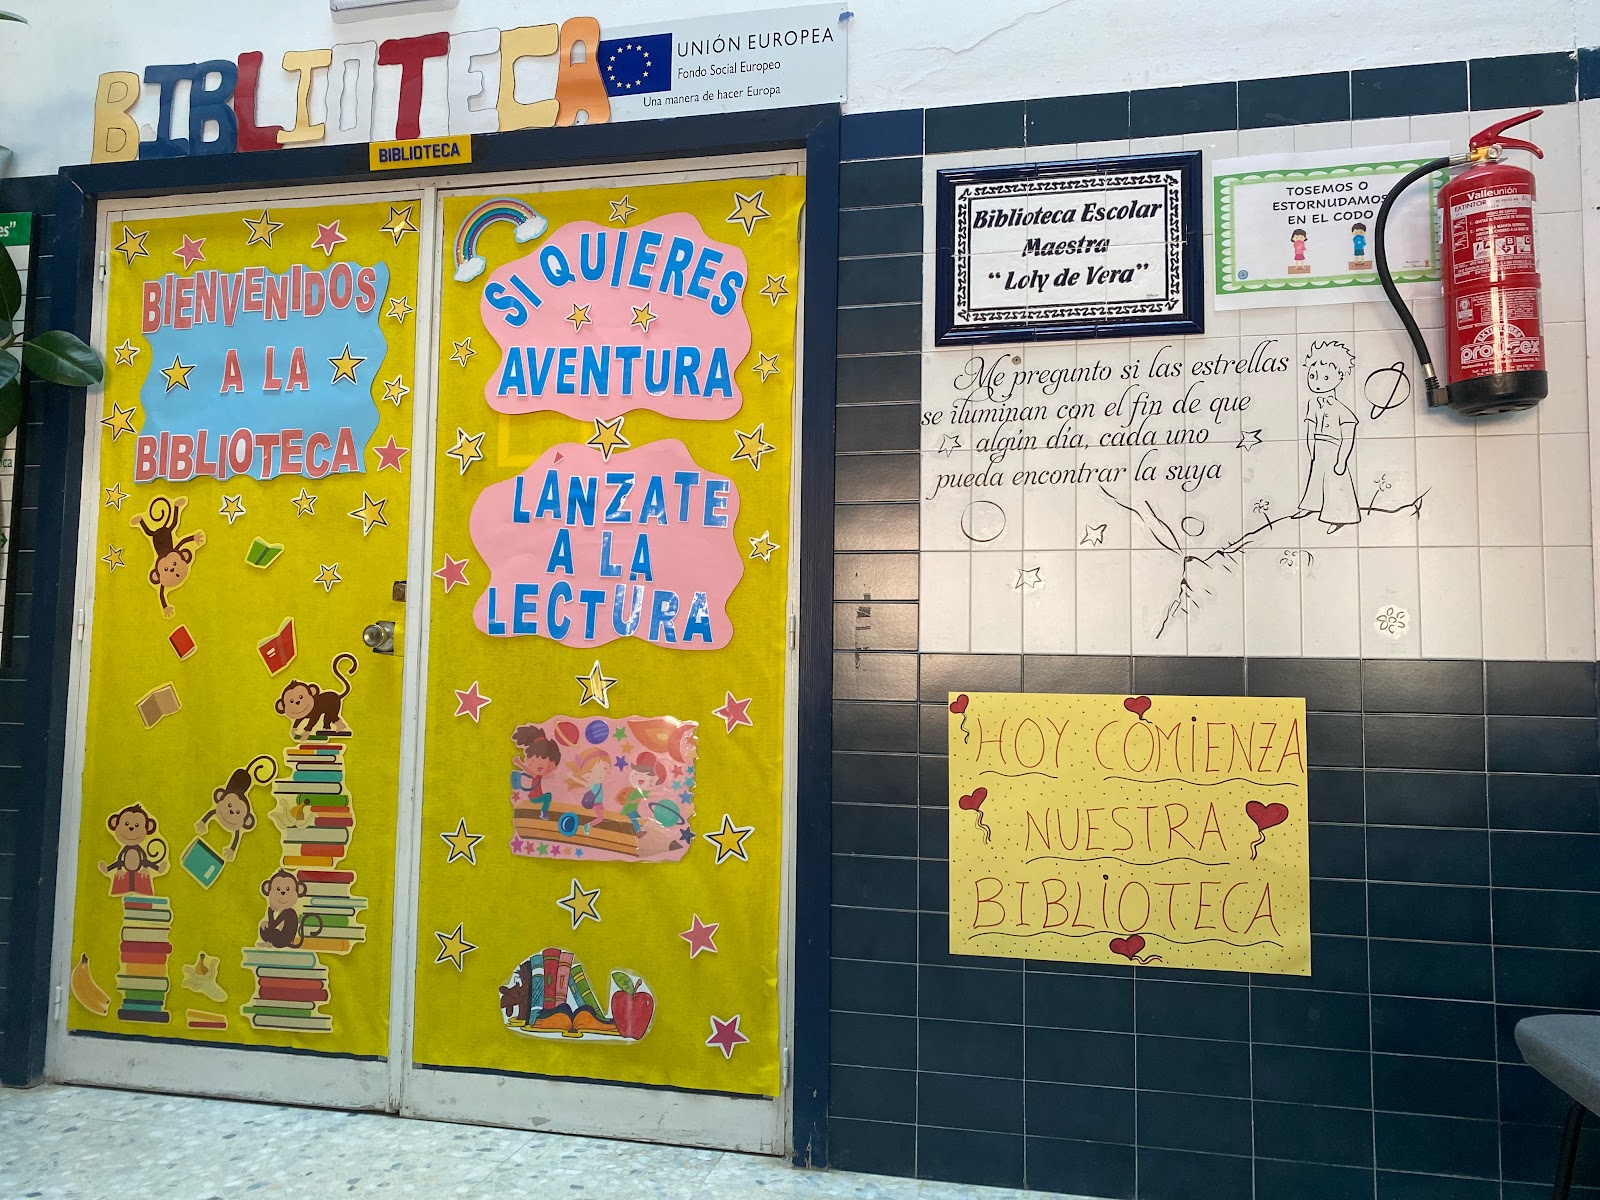 BIBLIOTECA
UNIÓN EUROPEA
Fondo Social Europeo
Una manera de hacer Europa
BIBLIOTECA
BIENVENIDOS
A LA
BIBLIOTECA
SI QUIERES
AVENTURA
LÁNZATE
A LA
LECTURA
Biblioteca Escolar
Maestra
“Loly de Vera”
TOSEMOS O
ESTORNUDAMOS
EN EL CODO
Valleunión
EXTINTOR
Me pregunto si las estrellas
se iluminan con el fin de que
algún día, cada uno
pueda encontrar la suya
HOY COMIENZA
NUESTRA
BIBLIOTECA